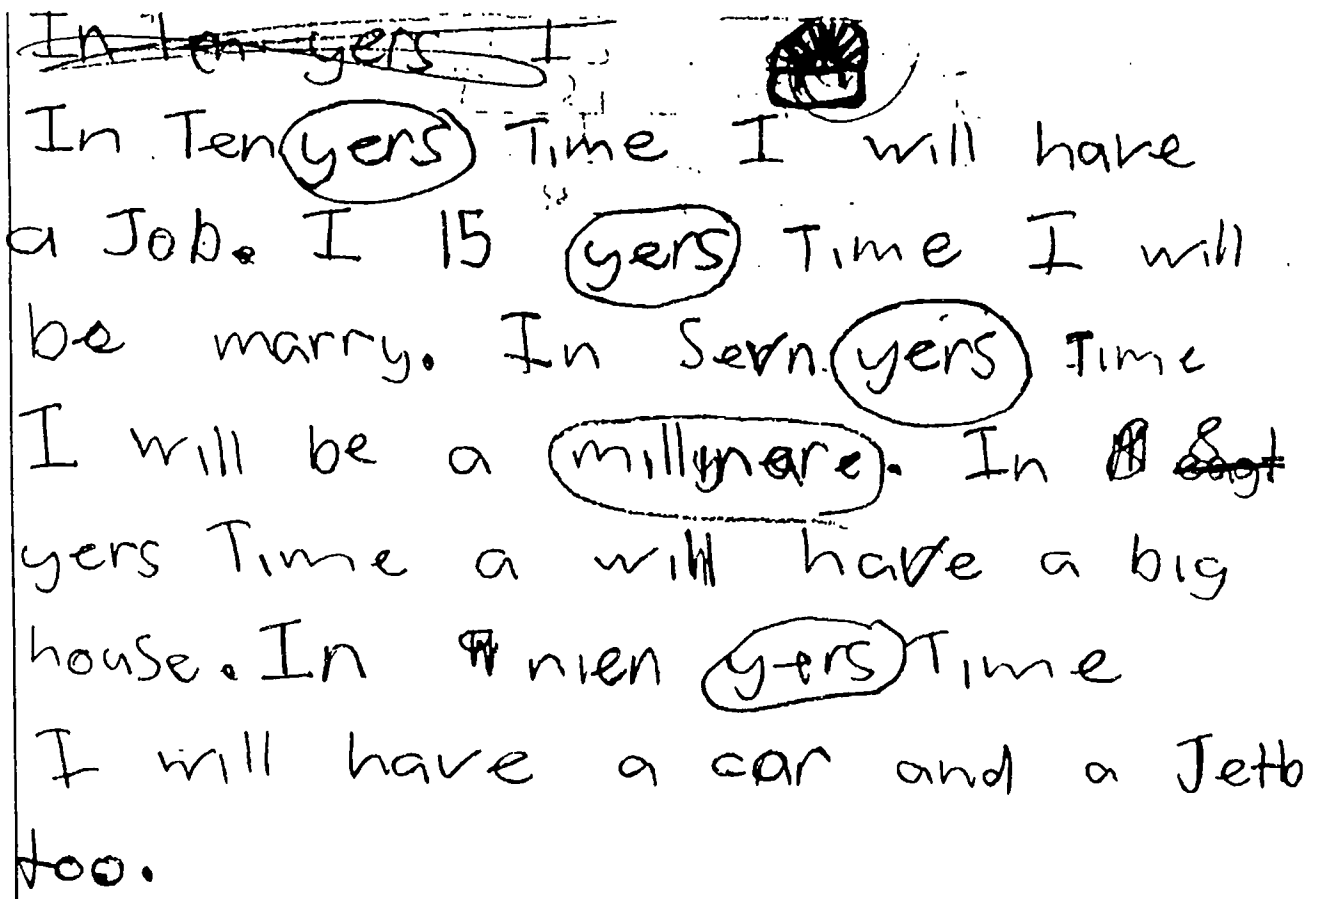 In ten yers I
In Ten yers Time I will have
a Job. I 15 yers Time I will
be marry. In Sevn yers Time
I will be a millynare. In 8
yers Time a will have a big
house. In nien yers Time
I will have a car and a Jetb
too.